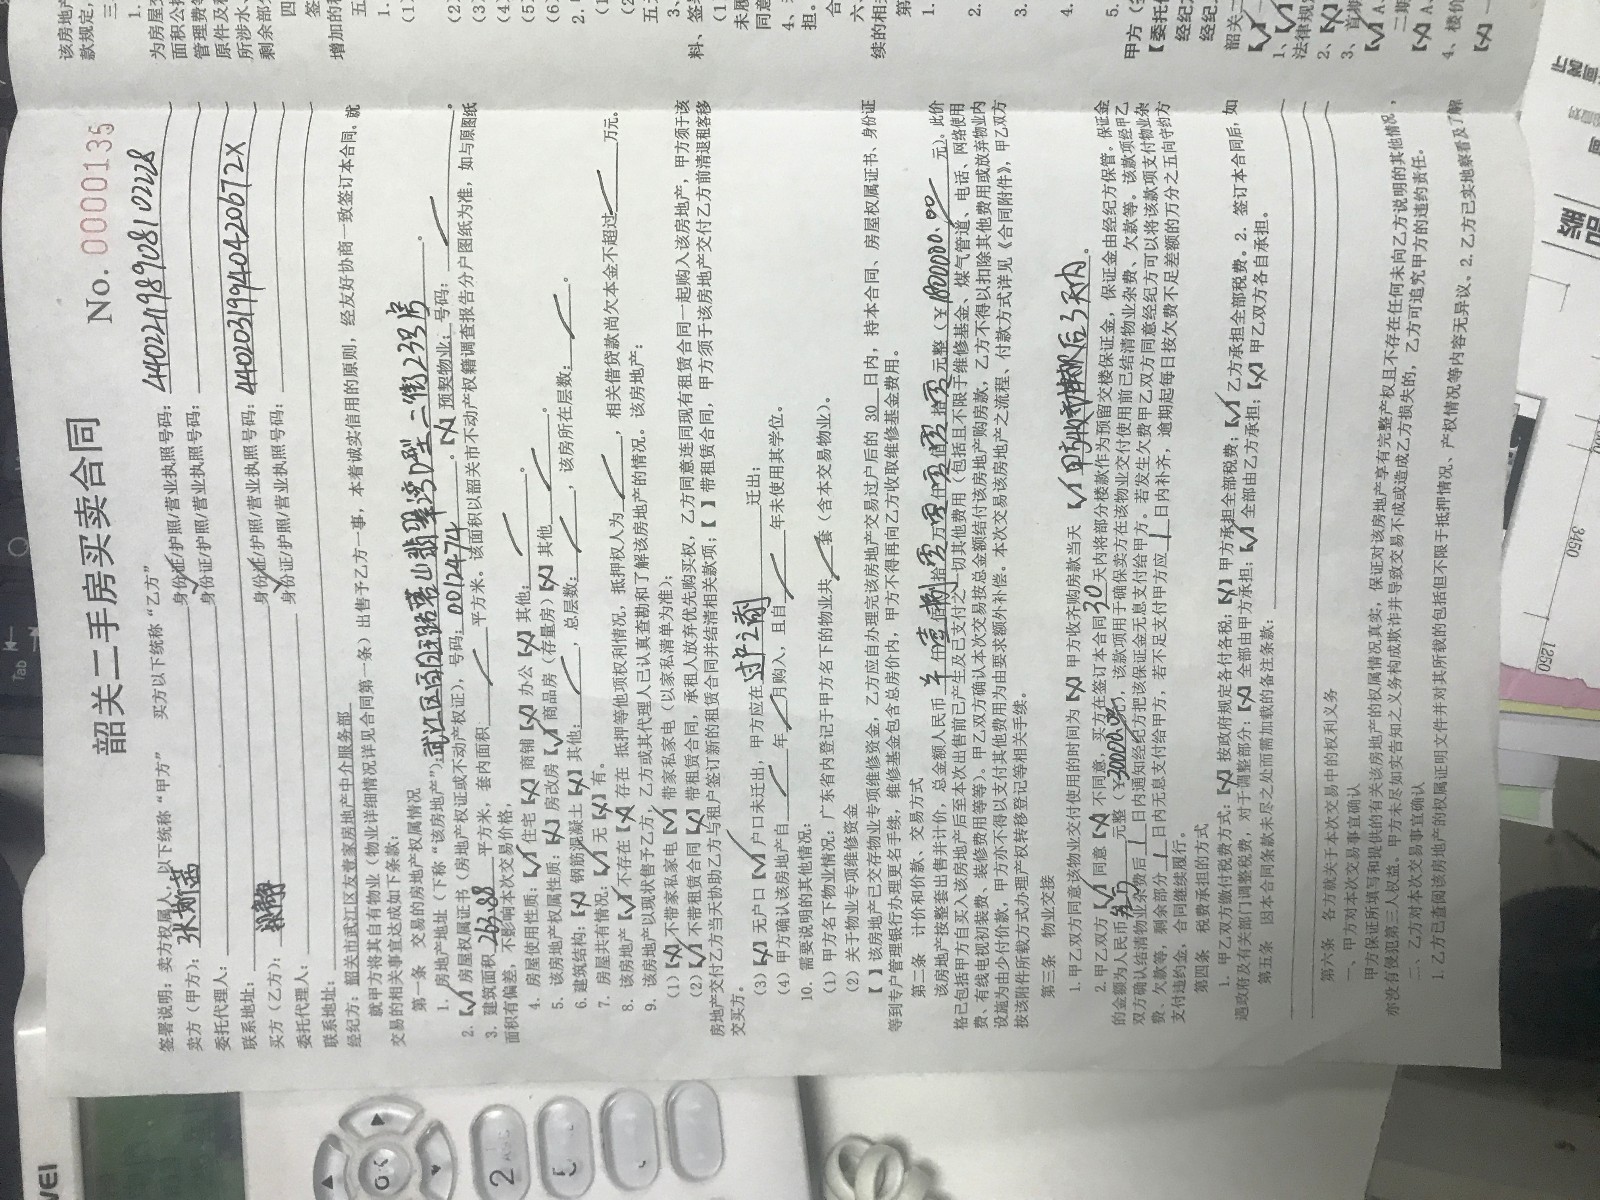 韶关二手房买卖合同
No. 0000135
签署说明：卖方权属人，以下统称“甲方” 买方以下统称“乙方”
卖方（甲方）： 身份证/护照/营业执照号码：440224198908102228
委托代理人： 身份证/护照/营业执照号码：
联系地址：
买方（乙方）： 身份证/护照/营业执照号码：44020319940420672X
委托代理人： 身份证/护照/营业执照号码：
联系地址：
经纪方：韶关市武江区友壹家房地产中介服务部
就甲方将其自有物业（物业详细情况详见合同第一条）出售予乙方一事，本着诚实信用的原则，经友好协商一致签订本合同。就
交易的相关事宜达成如下条款：
第一条 交易的房地产权属情况
1. 房地产地址（下称“该房地产”）：武江区百旺路芙山翡翠湾D型二街23号房。
2. 【√】房屋权属证书（房地产权证或不动产权证），号码：0012474。【X】预契物业；号码： 。
3. 建筑面积 266.88 平方米，套内面积 平方米。该面积以韶关市不动产权籍调查报告分户图纸为准，如与原图纸
面积有偏差，不影响本次交易价格，
4. 房屋使用性质：【√】住宅【X】商铺【X】办公【X】其他： 。
5. 该房地产权属性质：【X】房改房【√】商品房（存量房）【X】其他 。
6. 建筑结构：【X】钢筋混凝土【X】其他： ，总层数： ，该房所在层数： 。
7. 房屋共有情况：【√】无【X】有。
8. 该房地产【√】不存在【X】存在 抵押等他项权利情况，抵押权人为 ，相关借贷款尚欠本金不超过 万元。
9. 该房地产以现状售予乙方，乙方或其代理人已认真查勘和了解该房地产的情况。该房地产：
（1）【X】不带家私家电【√】带家私家电（以家私清单为准）；
（2）【√】不带租赁合同【X】带租赁合同，承租人放弃优先购买权，乙方同意连同现有租赁合同一起购入该房地产，甲方须于该
房地产交付乙方当天协助乙方与租户签订新的租赁合同并结清相关款项；【 】带租赁合同，甲方须于该房地产交付乙方前清退租客移
交买方。
（3）【X】无户口【√】户口未迁出，甲方应在 过户之前 迁出；
（4）甲方确认该房地产自 年 月购入，且自 年未使用其学位。
10. 需要说明的其他情况：
（1）甲方名下物业情况：广东省内登记于甲方名下的物业共 套（含本交易物业）。
（2）关于物业专项维修资金
【 】该房地产已交存物业专项维修资金，乙方应自办理完该房地产交易过户后的 30 日内，持本合同、房屋权属证书、身份证
等到专户管理银行办理更名手续，维修基金包含总房价内，甲方不得再向乙方收取维修基金费用。
第二条 计价和价款、交易方式
该房地产按整套出售并计价，总金额人民币 仟壹佰捌拾零万零仟零佰零拾零元整（￥1800000.00元）。此价
格已包括甲方自买入该房地产后至本次出售前已产生及已支付之一切其他费用（包括且不限于维修基金、煤气管道、电话、网络使用
费、有线电视初装费、装修费用等等）。甲乙双方确认本次交易按总金额结付该房地产购房款，乙方不得以扣除其他费用或放弃物业内
设施为由少付价款，甲方亦不得以支付其他费用为由要求额外补偿。本次交易该房地产之流程、付款方式详见《合同附件》，甲乙双方
按该附件所载方式办理产权转移登记等相关手续。
第三条 物业交接
1. 甲乙双方同意该物业交付使用的时间为【X】甲方收齐购房款当天【√】甲方收到尾款后3天内。
2. 甲乙双方【√】同意【X】不同意，买方在签订本合同30天内将部分楼款作为预留交楼保证金，保证金由经纪方保管。保证金
的金额为人民币叁万元整（￥30000元），该款项用于确保卖方在该物业交付使用前已结清物业杂费、欠款等。该款项经甲乙
双方确认结清物业杂费后 1 日内通知经纪方把该保证金无息支付给甲方。若发生欠费甲乙双方同意经纪方可以将该款项支付物业杂
费、欠款等，剩余部分 1 日内无息支付给甲方，若不足支付甲方应 1 日内补齐，逾期起每日按欠费不足差额的万分之五向守约方
支付违约金，合同继续履行。
第四条 税费承担的方式
1. 甲乙双方缴付税费方式：【X】按政府规定各付各税；【X】甲方承担全部税费；【√】乙方承担全部税费。2. 签订本合同后，如
遇政府及有关部门调整税费，对于调整部分：【X】全部由甲方承担；【√】全部由乙方承担；【X】甲乙双方各自承担。
第五条 因本合同条款未尽之处而需加载的备注条款：
第六条 各方就关于本次交易中的权利义务
一、甲方对本次交易事宜确认
甲方保证所填写和提供的有关该房地产的权属情况真实，保证对该房地产享有完整产权且不存在任何未向乙方说明的其他情况，
亦没有侵犯第三人权益，甲方未尽如实告知之义务构成欺诈并导致交易不成或造成乙方损失的，乙方可追究甲方的违约责任。
二、乙方对本次交易事宜确认
1. 乙方已查阅该房地产的权属证明文件并对其所载的包括但不限于抵押情况、产权情况等内容无异议。2. 乙方已实地察看及了解
该房地产
款规定，
三
1.
为房屋交
面积公摊
管理费等
原件及
所涉水、
剩余部分
四
签
五
增加的
1.
（1）
（2）
（3）
（4）
（5）
（6）
2.
3、
料、签
（1）
未履
同意
4、
担。
合
六、
续的相关
第
1.
2.
3.
4.
5.
甲方（
【委托
经纪方
经纪
韶关二
1、【√】
法律规定
2、【X】
3、首期
【√】A.
二期
【X】A.
4、楼价
【X】
Tab
OK
2
3450
1250